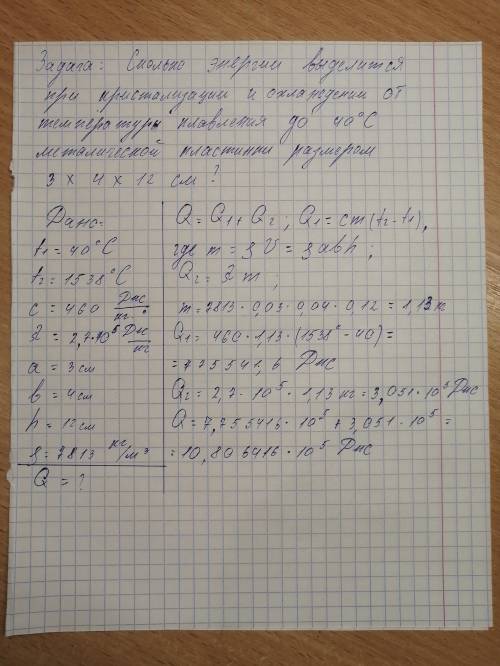 Задача: Сколько энергии выделится
при кристализации и охлаждении от
температуры плавления до 40°C
металической пластинки размером
3 х 4 х 12 см ?
Дано:
t₁ = 40°C
t₂ = 1538°C
c = 460 Дж/кг·°
λ = 2,7·10⁵ Дж/кг
a = 3 см
b = 4 см
h = 12 см
ρ = 7813 кг/м³
Q = ?
Q = Q₁ + Q₂ ; Q₁ = cm(t₂ - t₁),
где m = ρV = ρabh ;
Q₂ = λm ;
m = 7813 · 0,03 · 0,04 · 0,12 = 1,13 кг
Q₁ = 460 · 1,13 · (1538° - 40) =
= 775541,6 Дж
Q₂ = 2,7 · 10⁵ · 1,13 кг = 3,051 · 10⁵ Дж
Q = 7,755416 · 10⁵ + 3,051 · 10⁵ =
= 10,806416 · 10⁵ Дж